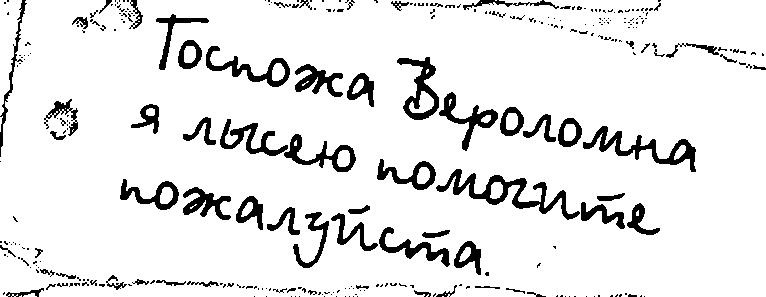 Госпожа Вероломна
я лысею помогите
пожалуйста.